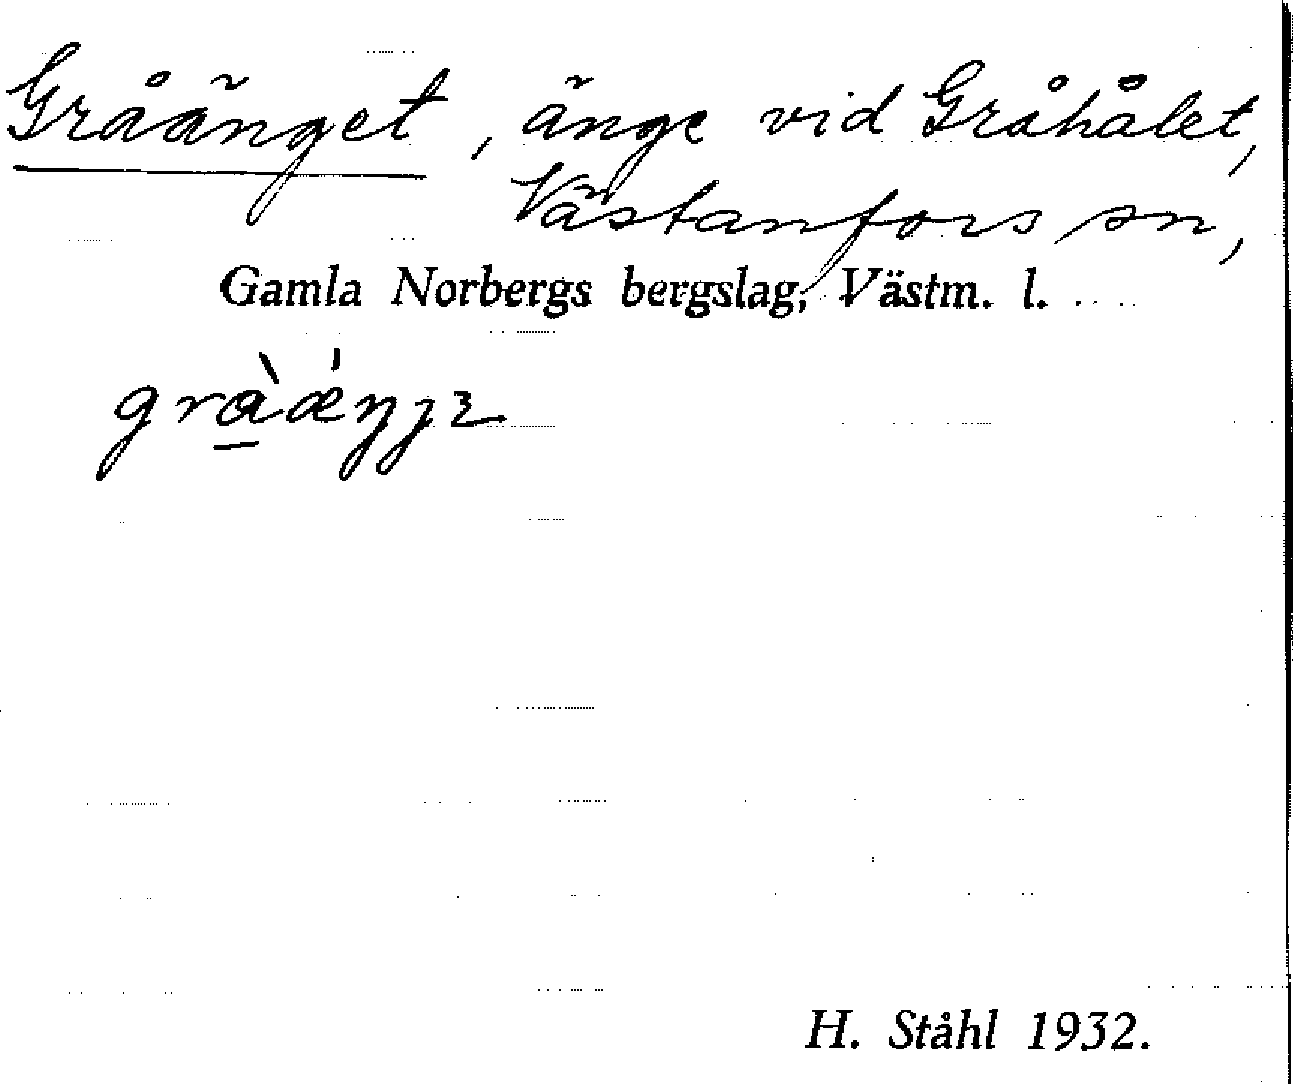 Gråänget, änge vid Gråhålet,
Västanfors sn,
Gamla Norbergs bergslag, Västm. l.
H. Ståhl 1932.